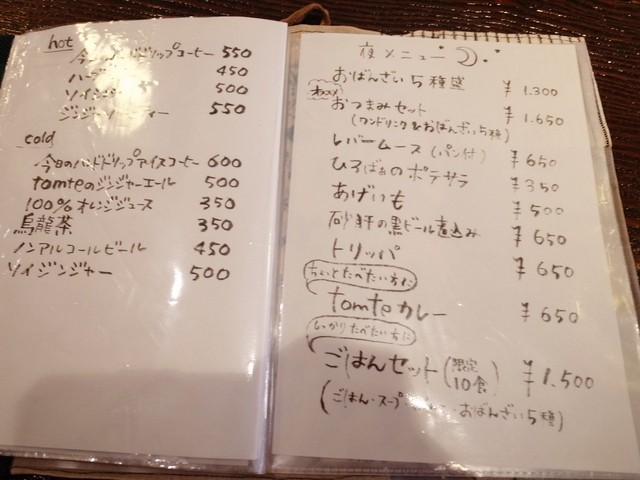 hot
ドリップコーヒー 550
450
ソイ 500
ジンジャー 550
cold
今日のハンドドリップアイスコーヒー 600
tomteのジンジャーエール 500
100%オレンジジュース 350
烏龍茶 350
ノンアルコールビール 450
ソイジンジャー 500
夜メニュー
おばんざい5種盛 ¥1.300
おつまみセット ¥1.650
(ワンドリンク&おばんざい5種)
レバームース(パン付) ¥650
ひろばぁのポテサラ ¥350
あげいも ¥500
砂肝の黒ビール煮込み ¥650
トリッパ ¥650
ちょいとたべたい方に
tomteカレー ¥650
しっかりたべたい方に
ごはんセット(限定10食) ¥1.500
(ごはん・スープ・ おばんざい5種)